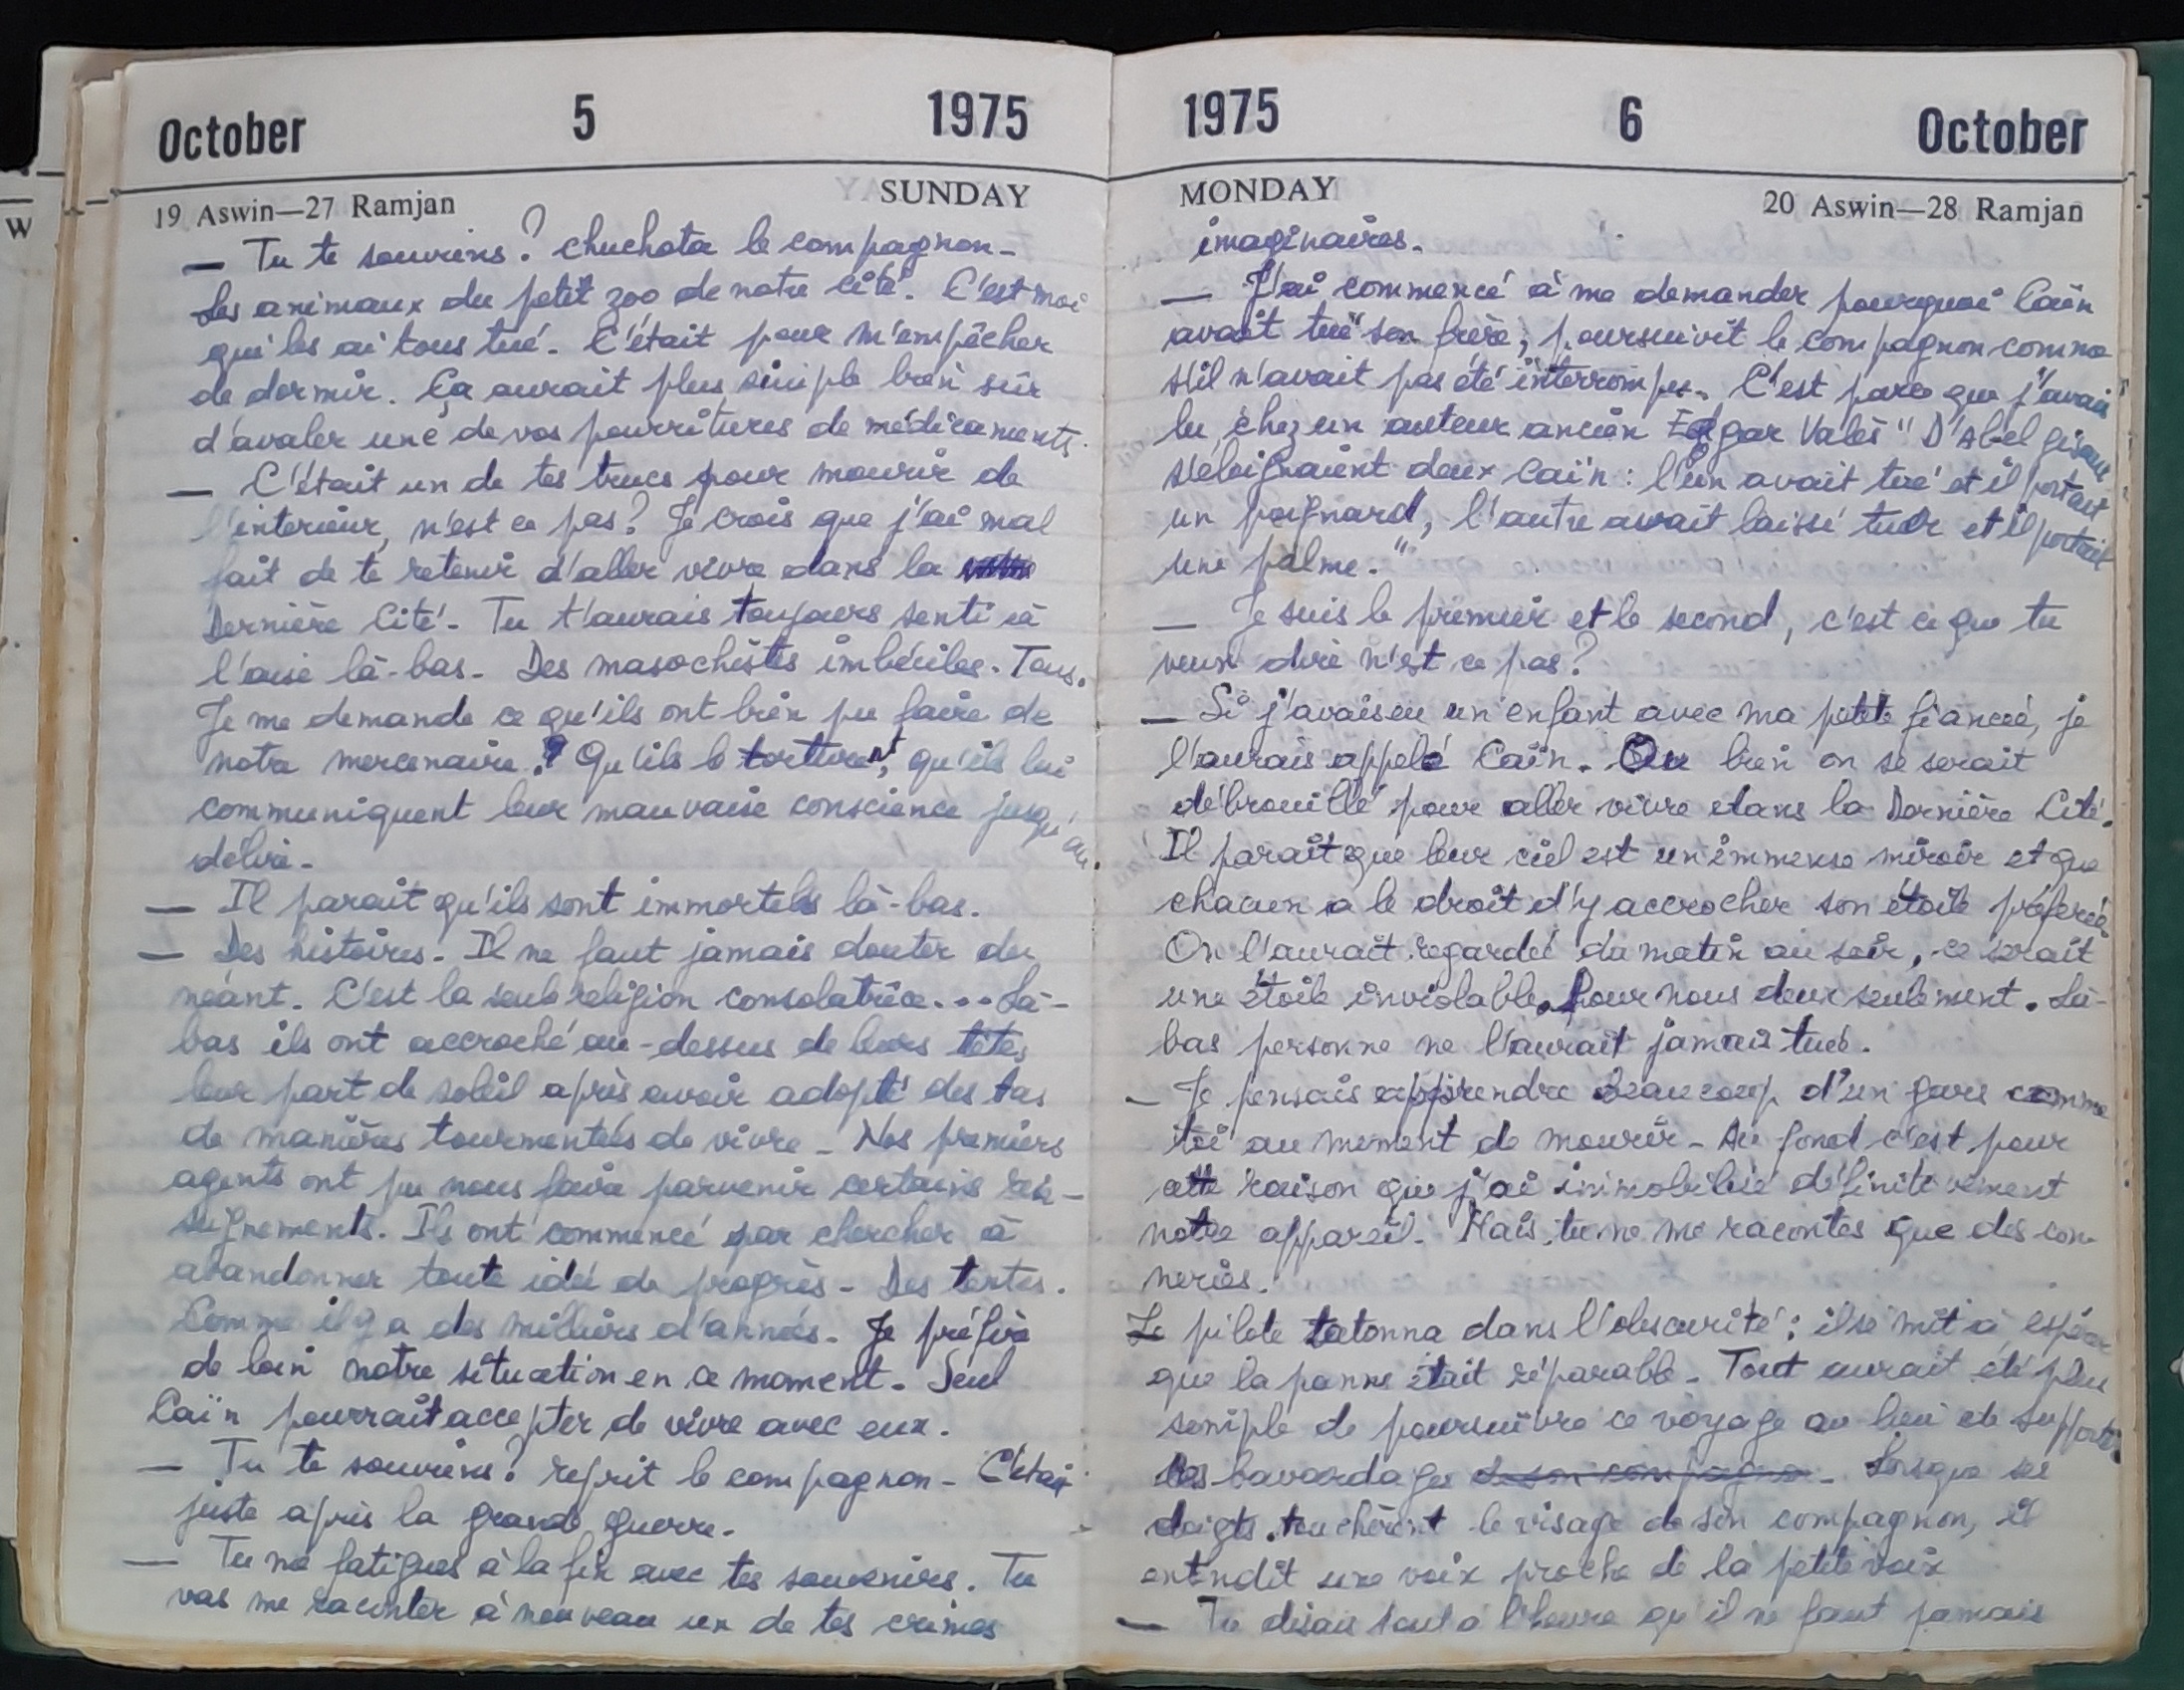 October 5 1975
19 Aswin—27 Ramjan SUNDAY
— Tu te souviens? chuchota le compagnon-
Les animaux du petit zoo de notre cité. C'est moi
qui les ai tous tué. C'était pour m'empêcher
de dormir. Ça aurait plus simple bien sûr
d'avaler une de vos pourritures de médicaments.
— C'était un de tes trucs pour mourir de
l'interieur, n'est ce pas? Je crois que j'ai mal
fait de te retenir d'aller vivre dans la
Dernière Cité. Tu t'aurais toujours senti à
l'aise là-bas. Des masochistes imbéciles. Tous.
Je me demande ce qu'ils ont bien pu faire de
notre mercenaire? Qu'ils le torturent, qu'ils lui
communiquent leur mauvaise conscience jusqu'au
délire.
— Il parait qu'ils sont immortels là-bas.
— Des histoires. Il ne faut jamais douter du
néant. C'est la seule religion consolatrice... Là-
bas ils ont accroché au-dessus de leurs têtes
leur part de soleil après avoir adopté des tas
de manières tourmentées de vivre. Nos premiers
agents ont pu nous faire parvenir certains ren-
seignements. Ils ont commencé par chercher à
abandonner toute idée de progrès. Des tertes.
Comme il y a des milliers d'années. Je préfère
de loin notre situation en ce moment. Seul
Caïn pourrait accepter de vivre avec eux.
— Tu te souviens? reprit le compagnon- C'était
juste après la grande guerre.
— Tu me fatigues à la fin avec tes souvenirs. Tu
vas me raconter à nouveau un de tes crimes
1975 6 October
MONDAY 20 Aswin—28 Ramjan
imaginaires.
— J'ai commencé à me demander pourquoi Caïn
avait tué son frère, poursuivit le compagnon comme
s'il n'avait pas été interrompu. C'est parce que j'avais
lu chez un auteur ancien Edgar Valès "D'Abel gisant
s'éloignaient deux Caïn: l'un avait tué et il portait
un poignard, l'autre avait laissé tuer et il portait
une palme."
— Je suis le premier et le second, c'est ce que tu
veux dire n'est ce pas?
— Si j'avais eu un enfant avec ma petite fiancée, je
l'aurais appelé Caïn. Ou bien on se serait
débrouillé pour aller vivre dans la Dernière Cité.
Il parait que leur ciel est un immense miroir et que
chacun a le droit d'y accrocher son étoile préférée.
On l'aurait regardée du matin au soir, ce serait
une étoile inviolable. Pour nous deux seulement. Là-
bas personne ne l'aurait jamais tuée.
— Je pensais apprendre beaucoup d'un gars comme
toi au moment de mourir. Au fond c'est pour
cette raison que j'ai immobilisé définitivement
notre appareil. Mais tu ne me racontes que des con-
neries.
Le pilote tatonna dans l'obscurité: il se mit à espérer
que la panne était réparable. Tout aurait été plus
simple de poursuivre ce voyage au lieu de supporter
les bavardages de son compagnon. Lorsque ses
doigts touchèrent le visage de son compagnon, il
entendit une voix proche de la petite voix
— Tu disais tout à l'heure qu'il ne faut jamais